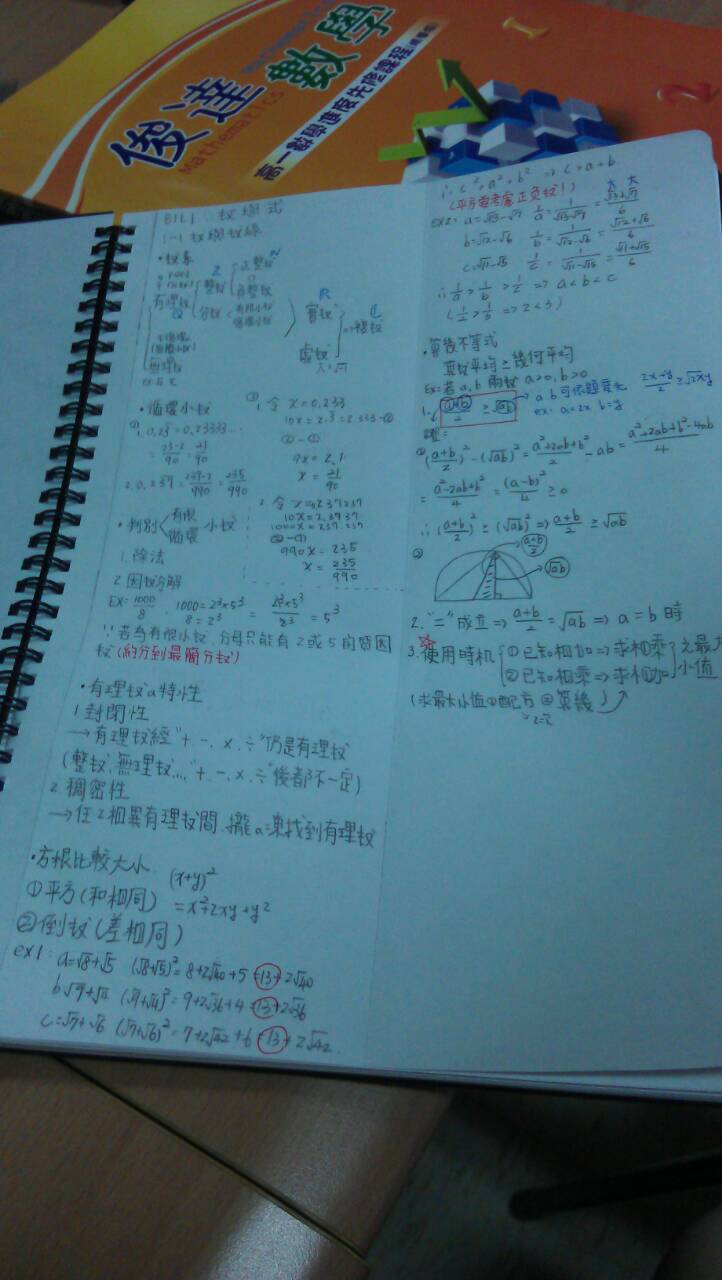 俊達數學
Mathematics
1
2
B1L1 數與式
1-1 數與數線
•數系
Z
N
正整數
整數
0
負整數
有理數
Q
分數
有限小數
循環小數
R
實數
C
無理數
虛數
•循環小數
= 23-2/90 = 21/90
2. 0.239 = 239-2/990 = 235/990
① 1. 令 x=0.233
10x = 2.3 = 2.333 -②
②-①
9x = 2.1
x = 21/90
2. 令 x=0.237237
②-①
990x = 235
x = 235/990
•判別 有限 循環 小數
1.除法
2.因數分解
EX= 1000/8 1000=2³×5³ 8=2³ = 2³×5³/2³ = 5³
∵若為有限小數,分母只能有2或5的質因
數(約分到最簡分數)
•有理數a特性
1.封閉性
→有理數經"+ - , × , ÷"仍是有理數
(整數,無理數…,"+ - , × , ÷"後都不一定)
2.稠密性
→任2相異有理數間,攏a凍找到有理數
•方根比較大小
(x+y)²
①平方(和相同) =x²+2xy+y²
②倒數(差相同)
ex1: a=√8+√5 (√8+√5)²=8+2√40+5=13+2√40
b√9+√4 (√9+√4)²=9+2√36+4=13+2√36
c=√7+√6 (√7+√6)²=7+2√42+6=13+2√42
∴ c²>a²>b² ⇒ c>a>b
(平方要考慮正負數!)
ex2: a=√13-√7 1/a = 1/√13-√7 = √13+√7/6
b=√12-√6 1/b = 1/√12-√6 = √12+√6/6
c=√11-√5 1/c = 1/√11-√5 = √11+√5/6
∴ 1/a > 1/b > 1/c ⇒ a<b<c
(1/2 > 1/3 ⇒ 2<3)
•算幾不等式
算數平均≥幾何平均
Ex=若a,b兩數 a>0,b>0
1. a+b/2 ≥ √ab
2x+y/2 ≥ √2xy
ex: a=2x b=y
證=
① (a+b/2)² - (√ab)² = a²+2ab+b²/2 - ab = a²+2ab+b²-4ab/4
= a²-2ab+b²/4 = (a-b)²/4 ≥ 0
∴ (a+b/2)² ≥ (√ab)² ⇒ a+b/2 ≥ √ab
②
a+b/2
√ab
2. "=" 成立 ⇒ a+b/2 = √ab ⇒ a=b時
3.使用時机 ①已知相加⇒求相乘
②已知相乘⇒求相加 之最大小值
(求最大小值①配方 ②算幾)